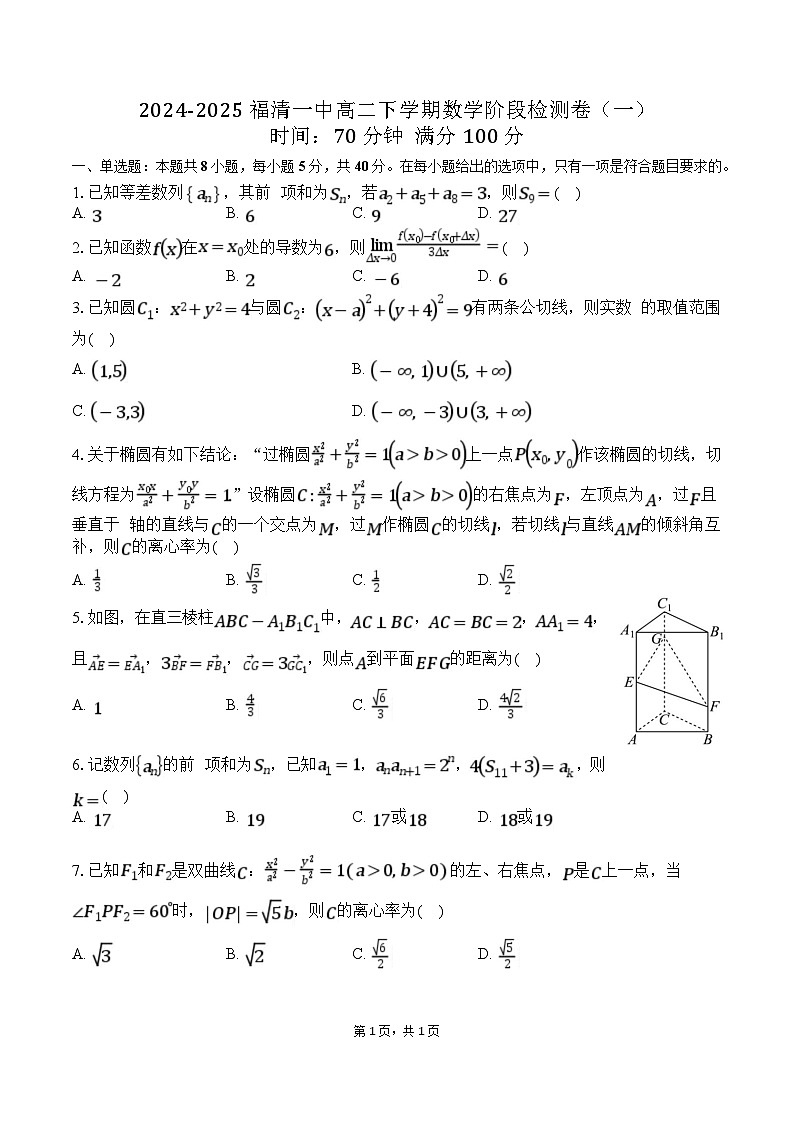 2024-2025 福清一中高二下学期数学阶段检测卷（一）
时间：70 分钟 满分 100 分
一、单选题：本题共 8 小题，每小题 5 分，共 40 分。在每小题给出的选项中，只有一项是符合题目要求的。
1. 已知等差数列{ aₙ }，其前 项和为Sₙ，若a₂+a₅+a₈=3，则S₉=( )
A. 3 B. 6 C. 9 D. 27
2. 已知函数f(x)在x=x₀处的导数为6，则lim_{Δx→0} (f(x₀)−f(x₀+Δx))/(3Δx) =( )
A. −2 B. 2 C. −6 D. 6
3. 已知圆C₁：x²+y²=4与圆C₂：(x−a)²+(y+4)²=9有两条公切线，则实数 的取值范围
为( )
A. (1,5) B. (−∞,1)∪(5,+∞)
C. (−3,3) D. (−∞,−3)∪(3,+∞)
4. 关于椭圆有如下结论：“过椭圆x²/a²+y²/b²=1(a>b>0)上一点P(x₀,y₀)作该椭圆的切线，切
线方程为x₀x/a²+y₀y/b²=1.”设椭圆C:x²/a²+y²/b²=1(a>b>0)的右焦点为F，左顶点为A，过F且
垂直于 轴的直线与C的一个交点为M，过M作椭圆C的切线l，若切线l与直线AM的倾斜角互
补，则C的离心率为( )
A. 1/3 B. √3/3 C. 1/2 D. √2/2
5. 如图，在直三棱柱ABC−A₁B₁C₁中，AC⊥BC，AC=BC=2，AA₁=4，
且AE⃗=EA₁⃗，3BF⃗=FB₁⃗，CG⃗=3GC₁⃗，则点A到平面EFG的距离为( )
A. 1 B. 4/3 C. √6/3 D. 4√2/3
C₁
A₁
G
B₁
E
F
C
A
B
6. 记数列{aₙ}的前 项和为Sₙ，已知a₁=1，aₙaₙ₊₁=2ⁿ，4(S₁₁+3)=aₖ，则
k=( )
A. 17 B. 19 C. 17或18 D. 18或19
7. 已知F₁和F₂是双曲线C：x²/a²−y²/b²=1(a>0,b>0)的左、右焦点，P是C上一点，当
∠F₁PF₂=60°时，|OP|=√5b，则C的离心率为( )
A. √3 B. √2 C. √6/2 D. √5/2
第 1 页，共 1 页